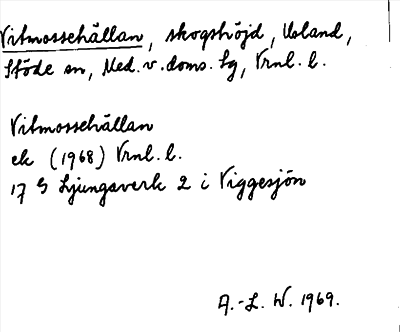 Vitmossehällan, skogshöjd, Usland,
Stöde sn, Med. v. doms. tg, Vrnl. l.
Vitmossehällan
ek (1968) Vrnl. l.
17 G Ljungaverk 2 i Viggesjön
A.-L. W. 1969.